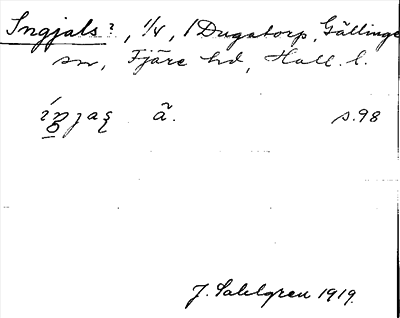 Ingjals?, 1/4, i Dugatorp, Gällinge
sn, Fjäre hd, Hall. l.
ã. s. 98
J. Sahlgren 1919.